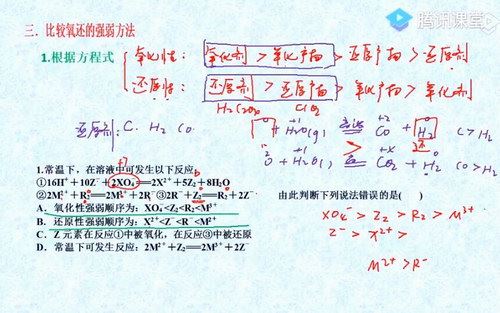 腾讯课堂
三. 比较氧还的强弱方法
1.根据方程式
氧化性: 氧化剂 > 氧化产物 > 还原产物 > 还原剂
还原性: 还原剂 > 还原产物 > 氧化产物 > 氧化剂
H₂C₂O₄ ClO₂
还原剂: C. H₂ CO
C + H₂O(g) 高温 CO + H₂ C > H₂
CO + H₂O(g) 高温 CO₂ + H₂ CO > H₂
1.常温下，在溶液中可发生以下反应:
①16H⁺+10Z⁻+2XO₄⁻═2X²⁺+5Z₂+8H₂O
②2M²⁺+R₂═2M³⁺+2R⁻③2R⁻+Z₂═R₂+2Z⁻ 由此判断下列说法错误的是( )
A．氧化性强弱顺序为：XO₄⁻<Z₂<R₂<M³⁺
B．还原性强弱顺序为：X²⁺<Z⁻<R⁻<M²⁺
C．Z 元素在反应①中被氧化，在反应③中被还原
D．常温下可发生反应：2M²⁺+Z₂═2M³⁺+2Z⁻
XO₄⁻ > Z₂ > R₂ > M³⁺
Z⁻ > X²⁺ >
M²⁺ > R⁻